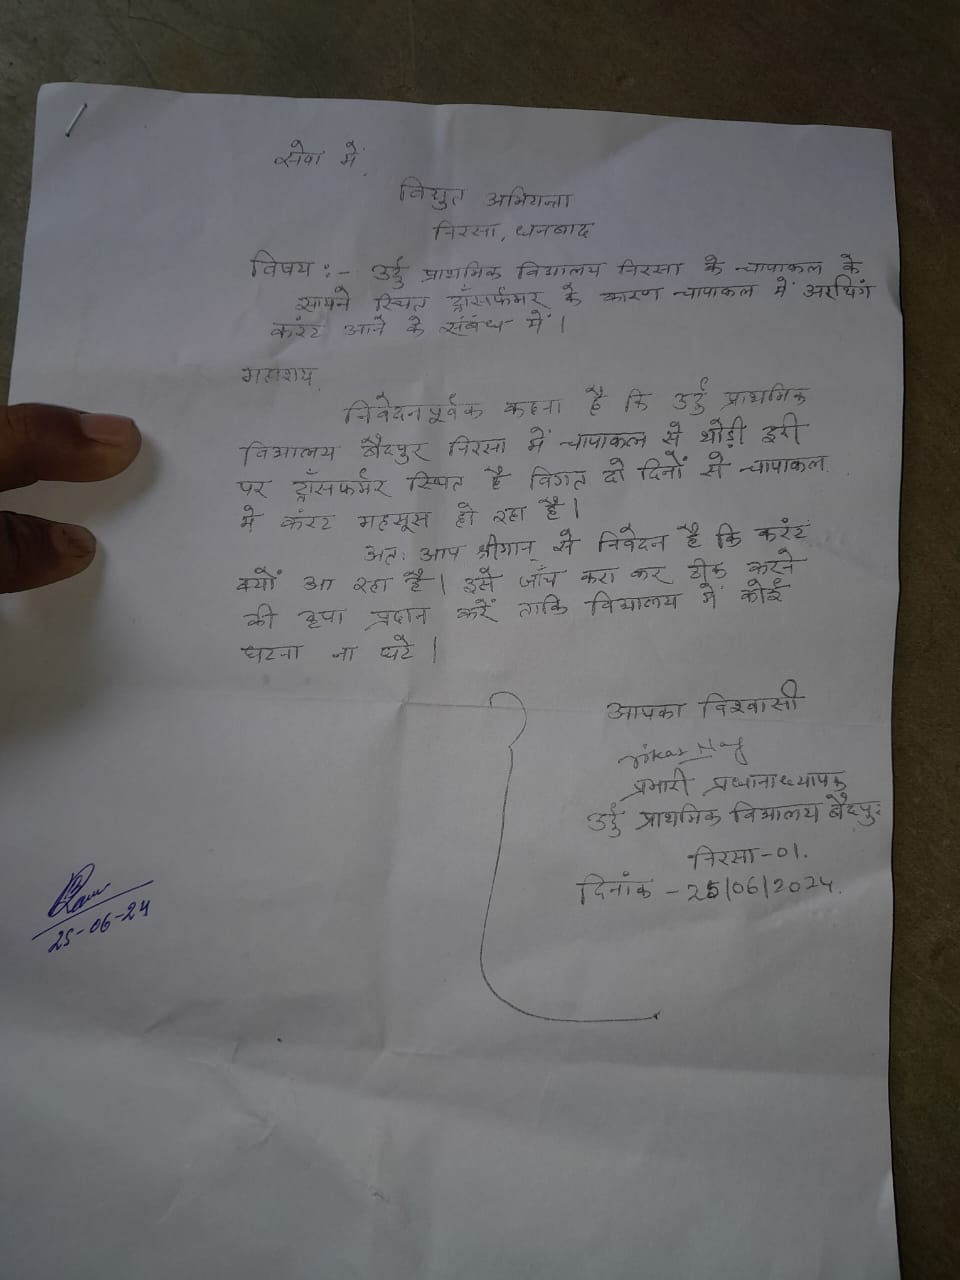 सेवा में,
विद्युत अभियन्ता
निरसा, धनबाद
विषय :- उर्दु प्राथमिक विद्यालय निरसा के चापाकल के
सामने स्थित ट्राँसर्फमर के कारण चापाकल में अरथिंग
करंट आने के संबंध में।
महाशय,
निवेदनपूर्वक कहना है कि उर्दु प्राथमिक
विद्यालय बैदपुर निरसा में चापाकल से थोड़ी दुरी
पर ट्राँसफर्मर स्थित है विगत दो दिनों से चापाकल
में कंरट महसूस हो रहा है।
अतः आप श्रीमान् से निवेदन है कि करंट
क्यों आ रहा है। इसे जाँच करा कर ठीक करने
की कृपा प्रदान करें ताकि विद्यालय में कोई
घटना ना घटे।
आपका विश्वासी
प्रभारी प्रधानाध्यापक
उर्दु प्राथमिक विद्यालय बैदपुर
निरसा-01.
दिनांक - 25/06/2024.
25-06-24